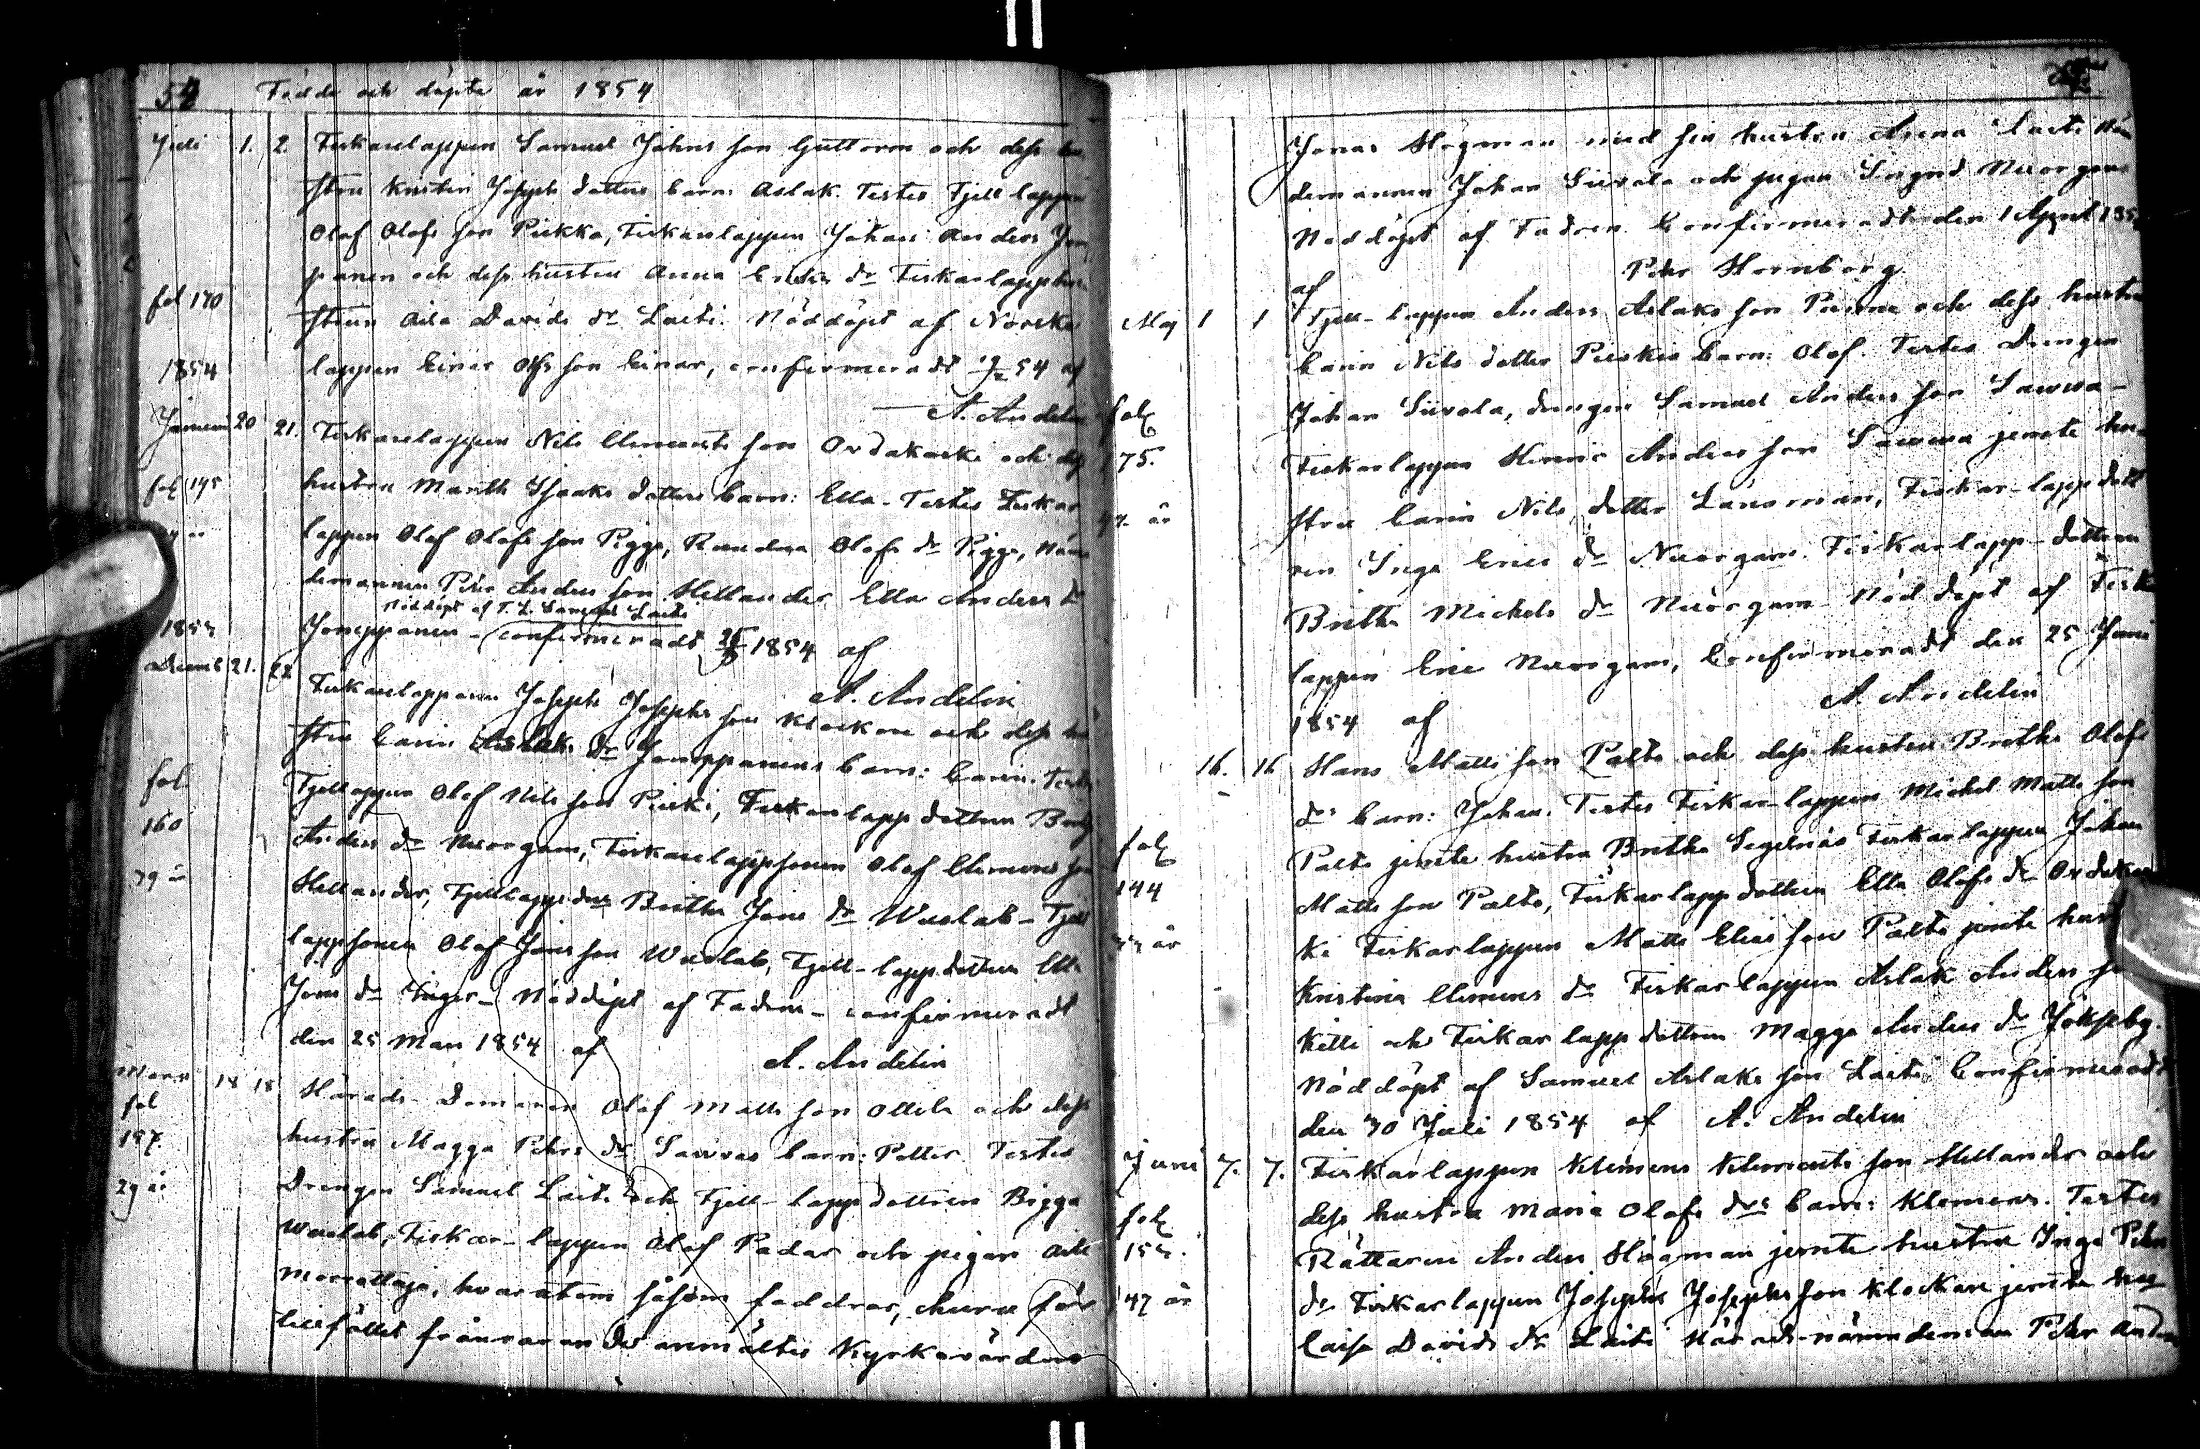 54 Födde och döpte år 1854
Juli 1. 2. Fiskarelappen Samuel Johns son Guttorm och dess hu
strun Kristin Joseph dotters barn: Aslak. Testes Fjell lappen
Olof Olofs son Piekko, Fiskarelappen Johan Anders Jom
panen och dess hustru Anna Eriks dr Fiskarlapphu
fol 170
strun Aila Davids dr Laiti. Nöddöpt af Norske
1854 lappen Einar Olfs son Einar, confirmeradt 54 af
A. Andelin
Januari 20 21. Fiskarelappen Nils Clements son Ordakoski och dess
fol 195 hustru Marith Isaaks dotters barn: Ella. Testes Fiskar
lappen Olof Olofs son Pigge, Olofs dr Pigge, Nämn
demannen Pehr Anders son Hellander Ella Anders dr
Nöddöpt af F. L. Samuel Laiti
1853 Jomppanen - confirmeradt 1854 af
A. Andelin
Decemb 21. 22 Fiskarelappens Josephs Josephs son Klockare och dess hu
stru Carin Aslaks dr Jomppanens barn: Carin. Testes
fol. Fjellappen Olof Nils son Pieski, Fiskarlapp dottren
160 Anders dr Nuorgam, Fiskarelappsonen Olof Clemens son
39 år Hellander, Fjellapp dna Britha Jons dr Wuolab - Fjell
lappsonen Olof Jons son Wuolab, Fjell-lappdottern Ella
Jons dr Inger - Nöddöpt af Fadren - confirmeradt
den 25 Mars 1854 af A. Andelin
Mars 18 18 Härads Domaren Olof Matts son Ottila och dess
fol 187. hustru Magga Pehrs dr Saiwas barn: Petter. Testes
29 år Drengen Samuel Laiti och Fjell-lappdottren Bigga
Wuolab, Fiskar-lappen Olof Padar och pigan Aili
Morottaja, hvarutom såsom faddrar, ehuru för
tillfället frånvarande anmältes Kyrkovärden
Jonas Högman med sin hustru Anna Laiti Nämn
demannen Johan Siivola och pigan Sigrid Nuorgam
Nöddöpt af Fadren. Confirmeradt den 1 April 1854
af Pehr Hornborg
Maj 1 1 Fjell-lappen Anders Aslaks son och dess hustru
Carin Nils dotter Pieskis barn: Olof. Testes Drengen
fol Johan Siivola, drengen Samuel Anders son Sawwa-
75. Fiskarlappen Henric Anders son Sawwa jemte hu-
år stru Carin Nils dotter Länsman, Fiskar-lappdott
ren Inga Erics dr Nuorgam. Fiskarlapp-dottren
Britha Michels dr Nuorgam Nöddöpt af Fisk
lappen Eric Nuorgam, Confirmeradt den 25 Juni
1854 af A. Andelin
16. 16 Hans Matts son Palto och dess hustru Britha Olofs
drs barn: Johan. Testes Fiskar-lappen Michel Matts son
fol Palto jemte hustru Britha Segelnäs Fiskarlappen Johan
144 Matts son Palto, Fiskarlapp dottren Ella Olofs dr Ordakos
år ki Fiskarlappen Matts Elias son Palto jemte hust
Kristina Clemens dr Fiskarlappen Aslak Anders son
Kitti och Fiskarlappdottren Magga Anders dr
Nöddöpt af Samuel Aslaks son Laiti Confirmeradt
den 30 Juli 1854 af A. Andelin
Juni 7. 7. Fiskarlappen Klemens Klements son Hellander och
fol dess hustru Maria Olofs drs barn: Klemens. Testes
155. Rättaren Anders Högman jemte hustru Inga Pehrs
47 år dr Fiskarlappen Josephs Josephs son Klockare jemte hus
Caisa Davids dr Laiti Härads-nämndeman Pehr Anders